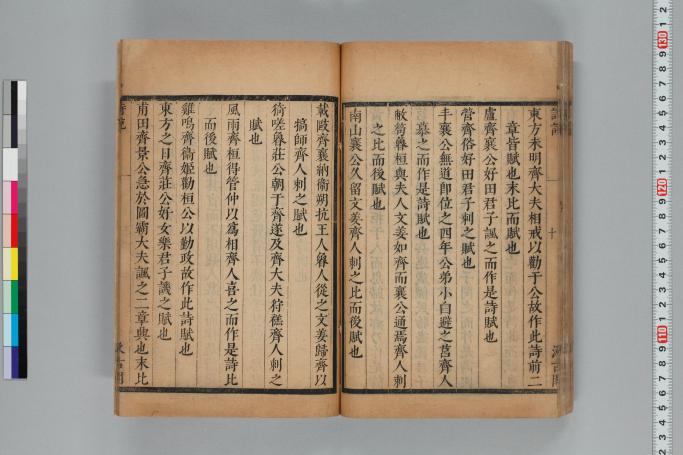 東方未明齊大夫相戒以勸于公故作此詩前二
章皆賦也末比而賦也
盧齊襄公好田君子諷之而作是詩賦也
營齊俗好田君子刺之賦也
丰襄公無道鮑位之四年公弟小白避之莒齊人
慕之而作是詩賦也
敝笱魯桓與夫人文姜如齊而襄公通焉齊人刺
之比而後賦也
南山襄公久留文姜齊人刺之比而後賦也
載敺齊襄納衞朔抗王人魯人從之文姜歸齊以
犒師齊人刺之賦也
猗嗟魯莊公朝于齊遂及齊大夫狩禚齊人刺之
賦也
風雨齊桓得管仲以爲相齊人喜之而作是詩比
而後賦也
雞鳴齊衞姬勸桓公以勤政故作此詩賦也
東方之日齊莊公好女樂君子譏之賦也
甫田齊景公急於圖霸大夫諷之二章典也末比
詩說
十
汲古閣
130
120
110